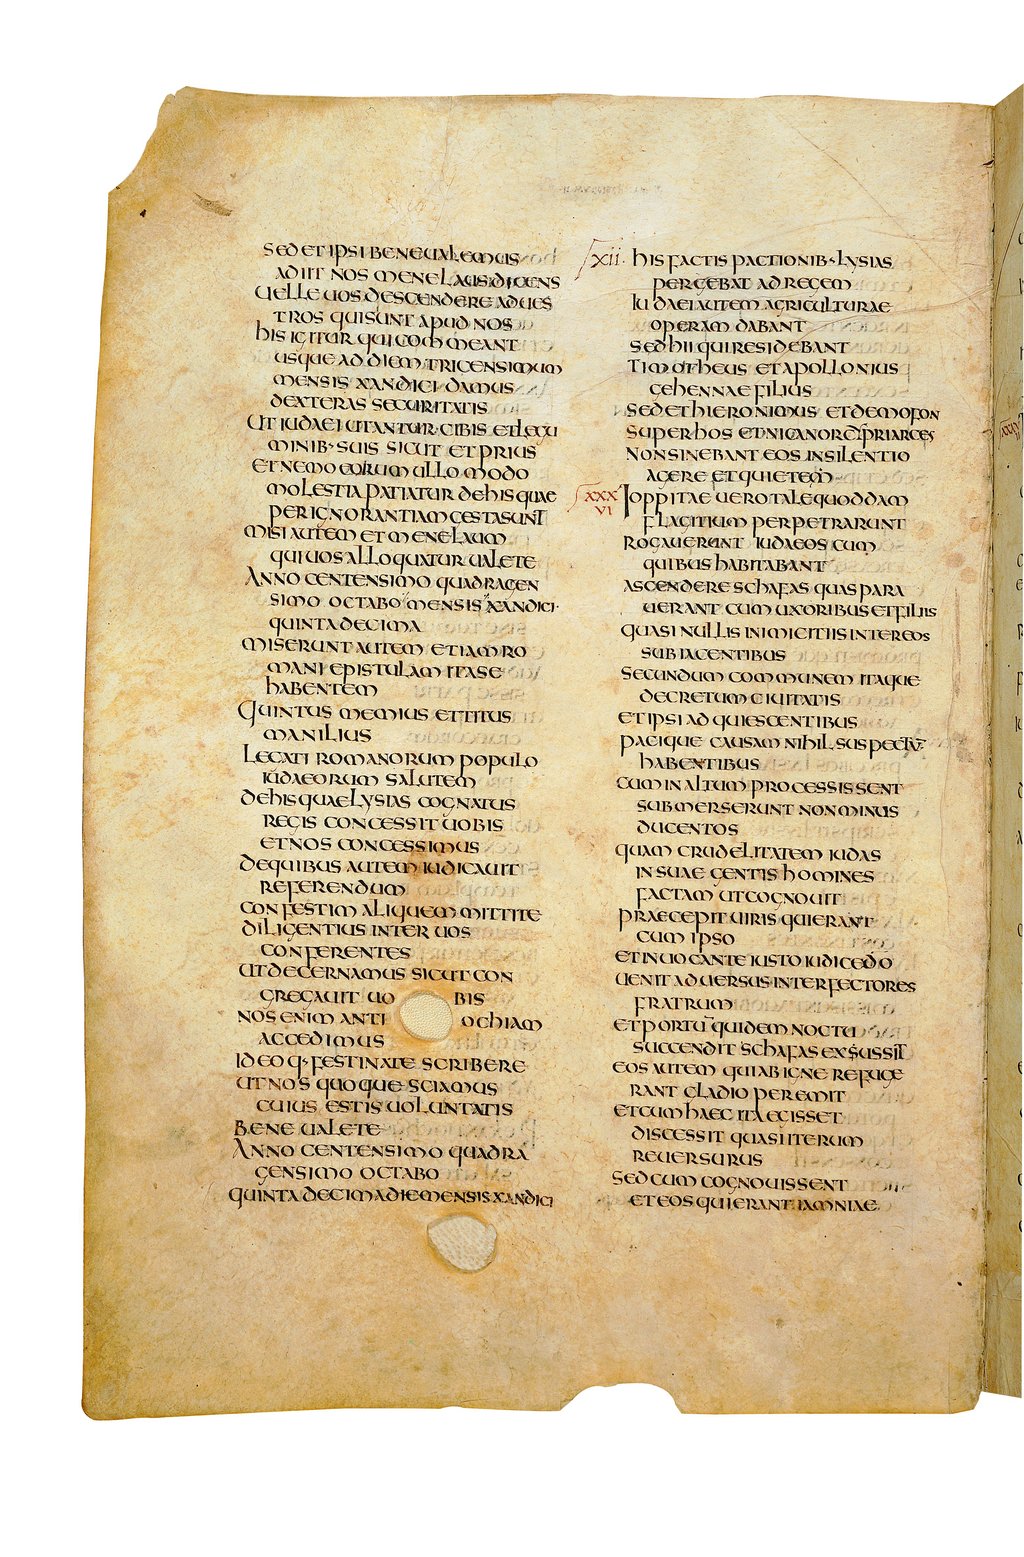 SED ET IPSI BENE UALEMUS
ADIIT NOS MENELAUS DICENS
UELLE UOS DESCENDERE AD UES
TROS QUI SUNT APUD NOS
HIS IGITUR QUI COMMEANT
USQUE AD DIEM TRICENSIMUM
MENSIS XANDICI DAMUS
DEXTERAS SECURITATIS
UT IUDAEI UTANTUR CIBIS ET LEGI
MINIB· SUIS SICUT ET PRIUS
ET NEMO EORUM ULLO MODO
MOLESTIA PATIATUR DE HIS QUAE
PER IGNORANTIAM GESTA SUNT
MISI AUTEM ET MENELAUM
QUI UOS ALLOQUATUR UALETE
ANNO CENTENSIMO QUADRAGEN
SIMO OCTABO MENSIS XANDICI·
QUINTA DECIMA
MISERUNT AUTEM ETIAM RO
MANI EPISTULAM ITA SE
HABENTEM
QUINTUS MEMIUS ET TITUS
MANILIUS
LEGATI ROMANORUM POPULO
IUDAEORUM SALUTEM
DE HIS QUAE LYSIAS COGNATUS
REGIS CONCESSIT UOBIS
ET NOS CONCESSIMUS
DE QUIBUS AUTEM IUDICAUIT
REFERENDUM
CONFESTIM ALIQUEM MITTITE
DILIGENTIUS INTER UOS
CONFERENTES
UT DECERNAMUS SICUT CON
GREGAUIT UO BIS
NOS ENIM ANTI OCHIAM
ACCEDIMUS
IDEOQ· FESTINATE SCRIBERE
UT NOS QUOQUE SCIAMUS
CUIUS ESTIS UOLUNTATIS
BENE UALETE
ANNO CENTENSIMO QUADRA
GENSIMO OCTABO
QUINTA DECIMA DIE MENSIS XANDICI
XII· HIS FACTIS PACTIONIB· LYSIAS
PERGEBAT AD REGEM
IUDAEI AUTEM AGRICULTURAE
OPERAM DABANT
SED HII QUI RESIDEBANT
TIMOTHEUS ET APOLLONIUS
GEHENNAE FILIUS
SED ET HIERONIMUS ET DEMOFON
SUPER HOS ET NICANOR CYPRIARCES
NON SINEBANT EOS IN SILENTIO
AGERE ET QUIETEM
XXXVI IOPPITAE UERO TALE QUODDAM
FLAGITIUM PERPETRARUNT
ROGAUERUNT IUDAEOS CUM
QUIBUS HABITABANT
ASCENDERE SCHAFAS QUAS PARA
UERANT CUM UXORIBUS ET FILIIS
QUASI NULLIS INIMICITIIS INTER EOS
SUBIACENTIBUS
SECUNDUM COMMUNEM ITAQUE
DECRETUM CIUITATIS
ET IPSI ADQUIESCENTIBUS
PACIQUE CAUSAM NIHIL SUSPECTŪ
HABENTIBUS
CUM IN ALTUM PROCESSISSENT
SUBMERSERUNT NON MINUS
DUCENTOS
QUAM CRUDELITATEM IUDAS
IN SUAE GENTIS HOMINES
FACTAM UT COGNOUIT
PRAECEPIT UIRIS QUI ERANT
CUM IPSO
ET INUOCANTE IUSTO IUDICE DO
UENIT ADUERSUS INTERFECTORES
FRATRUM
ET PORTŪ QUIDEM NOCTU
SUCCENDIT SCHAFAS EXSUSSIT
EOS AUTEM QUI AB IGNE REFUGE
RANT GLADIO PEREMIT
ET CUM HAEC ITA EGISSET
DISCESSIT QUASI ITERUM
REUERSURUS
SED CUM COGNOUISSENT
ET EOS QUI ERANT IAMNIAE